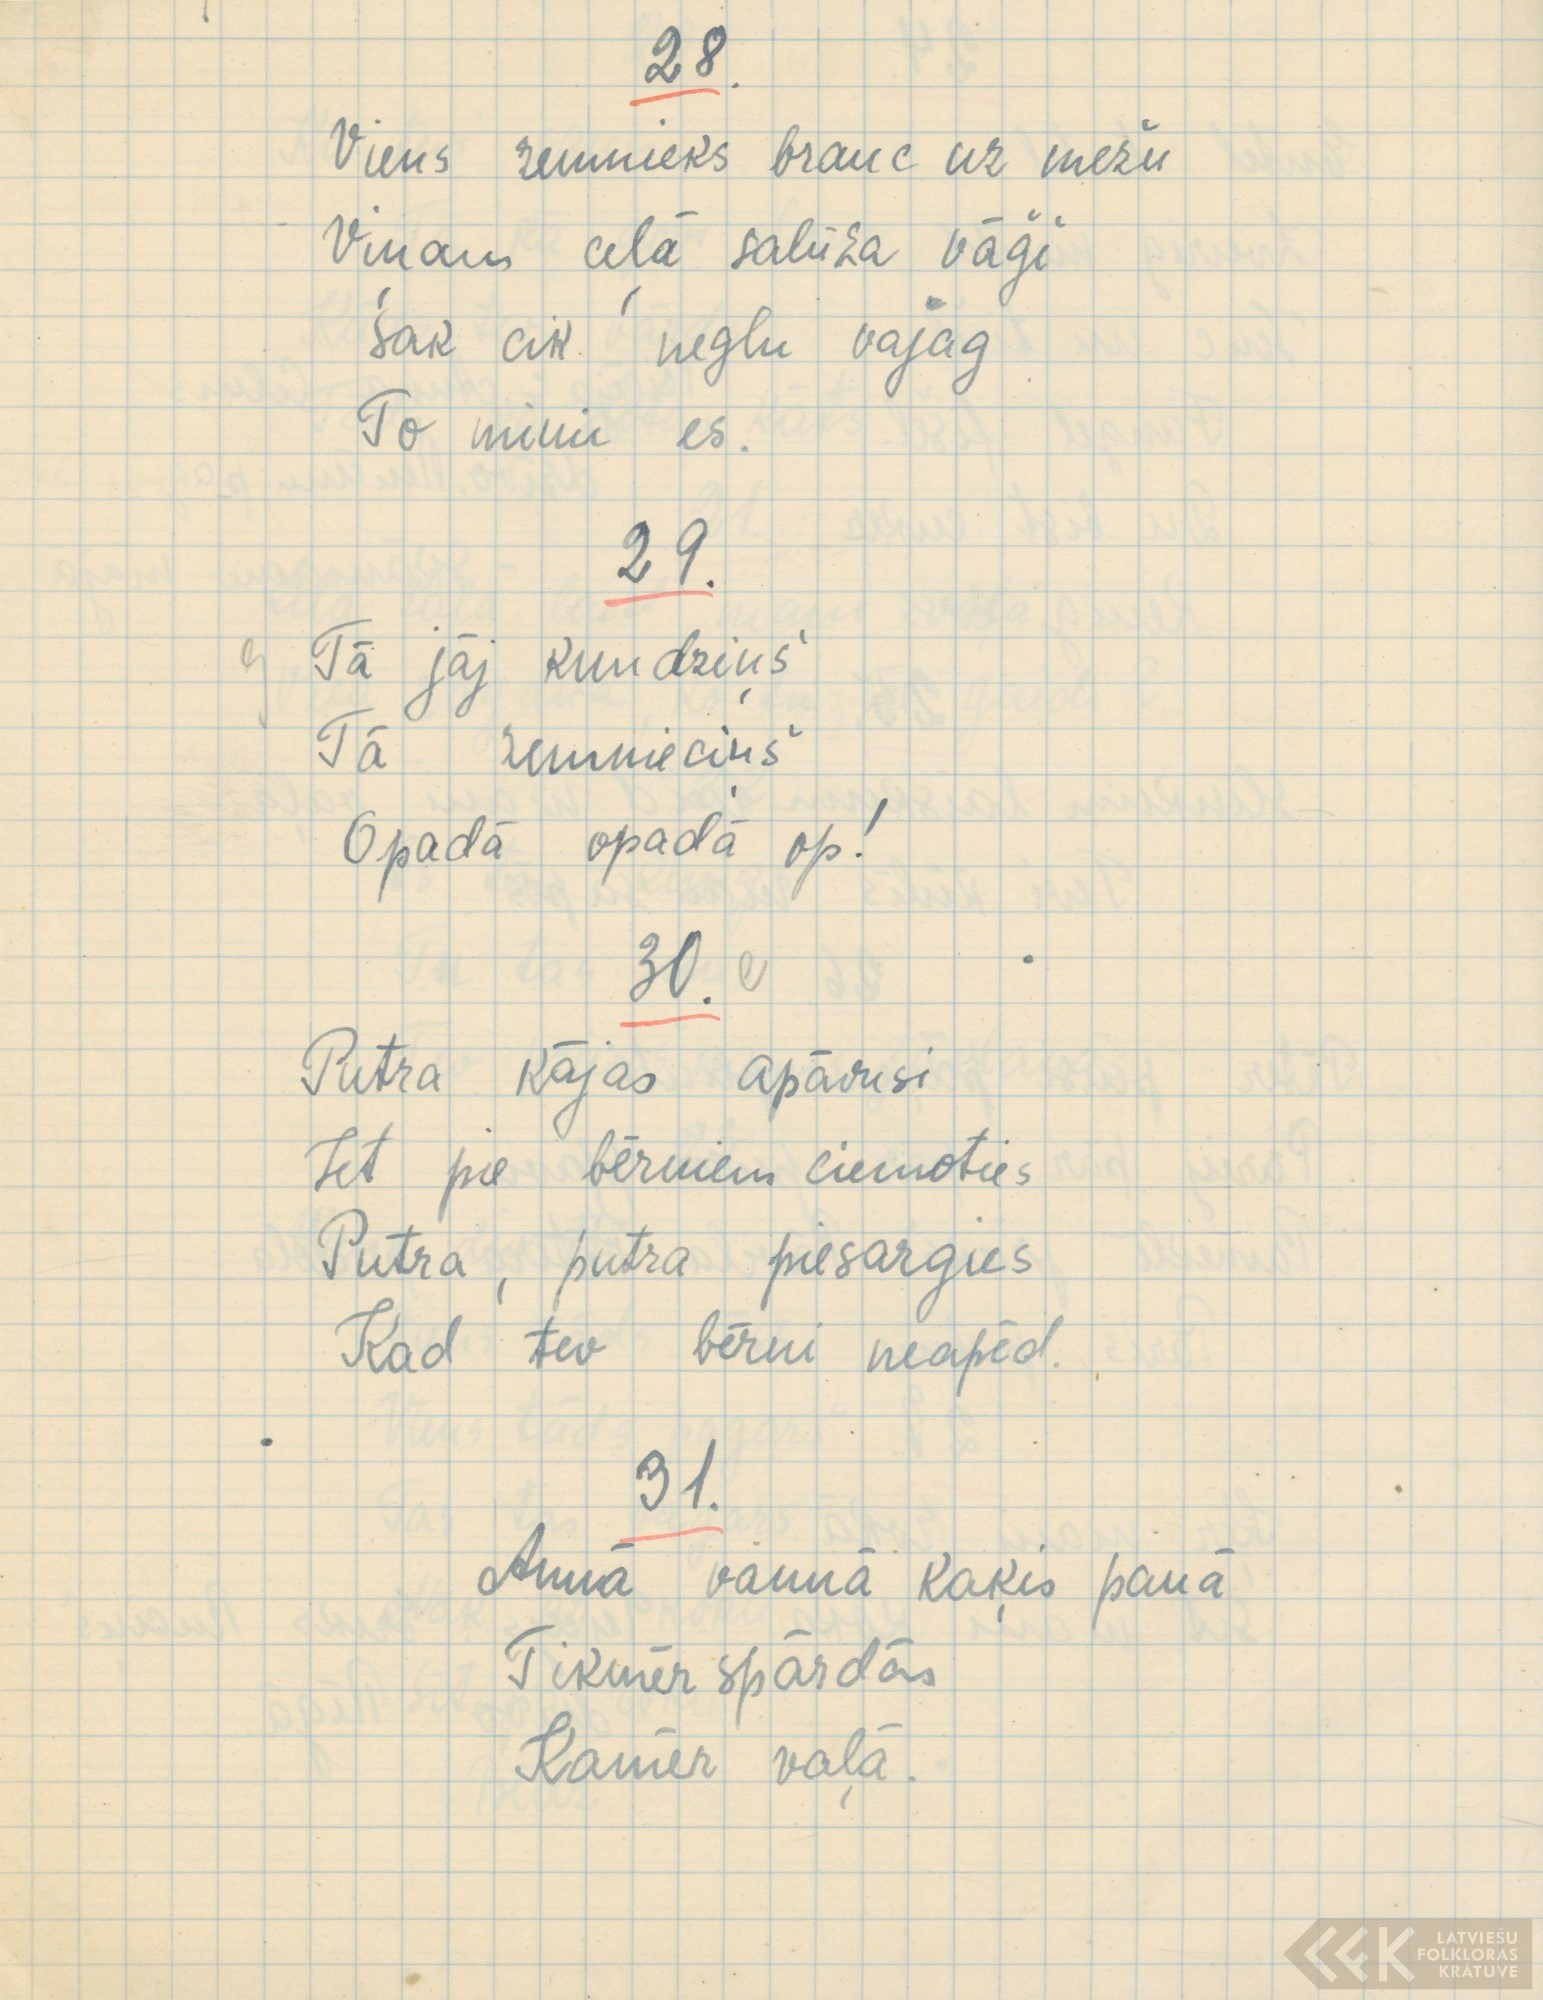 28.
Viens zemnieks brauc uz mežu
Viņam ceļā salūža vāģi
Sak cik neglu vajag
To mini es.
29.
g Tā jāj kundziņš
Tā zemnieciņš
Opadā opadā op!
30. e
Putra kājas apāvusi
Iet pie bērniem ciemoties
Putra, putra piesargies
Kad tev bērni neapēd.
31.
Annā vannā kaķis pannā
Tikmēr spārdās
Kamēr vaļā.
LATVIEŠU
FOLKLORAS
KRĀTUVE